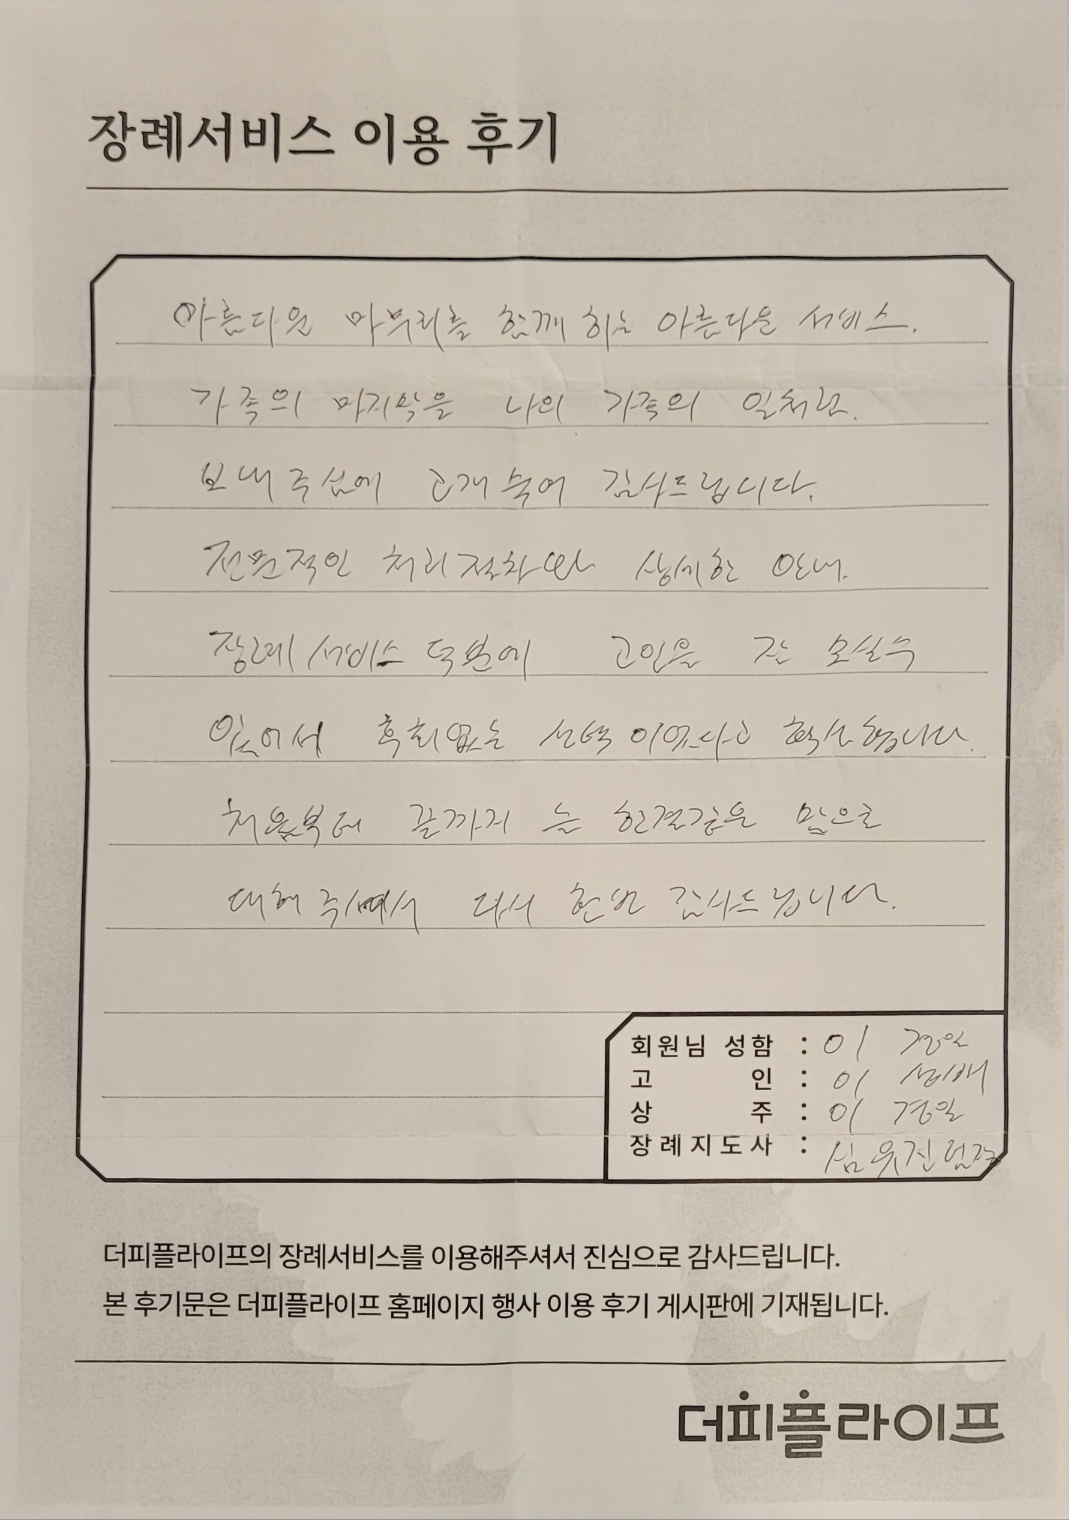 장례서비스 이용 후기
아름다운 마무리를 함께 하는 아름다운 서비스.
가족의 마지막을 나의 가족의 일처럼.
보내주심에 고개숙여 감사드립니다.
전문적인 처리절차와 상세한 안내.
장례서비스 덕분에 고인을 잘 모실수
있어서 후회없는 선택이었다고 확신합니다.
처음부터 끝까지 늘 한결같은 맘으로
대해주셔서 다시 한번 감사드립니다.
회원님 성함 : 이
고 인 : 이
상 주 : 이
장례지도사 : 심 팀장
더피플라이프의 장례서비스를 이용해주셔서 진심으로 감사드립니다.
본 후기문은 더피플라이프 홈페이지 행사 이용 후기 게시판에 기재됩니다.
더피플라이프